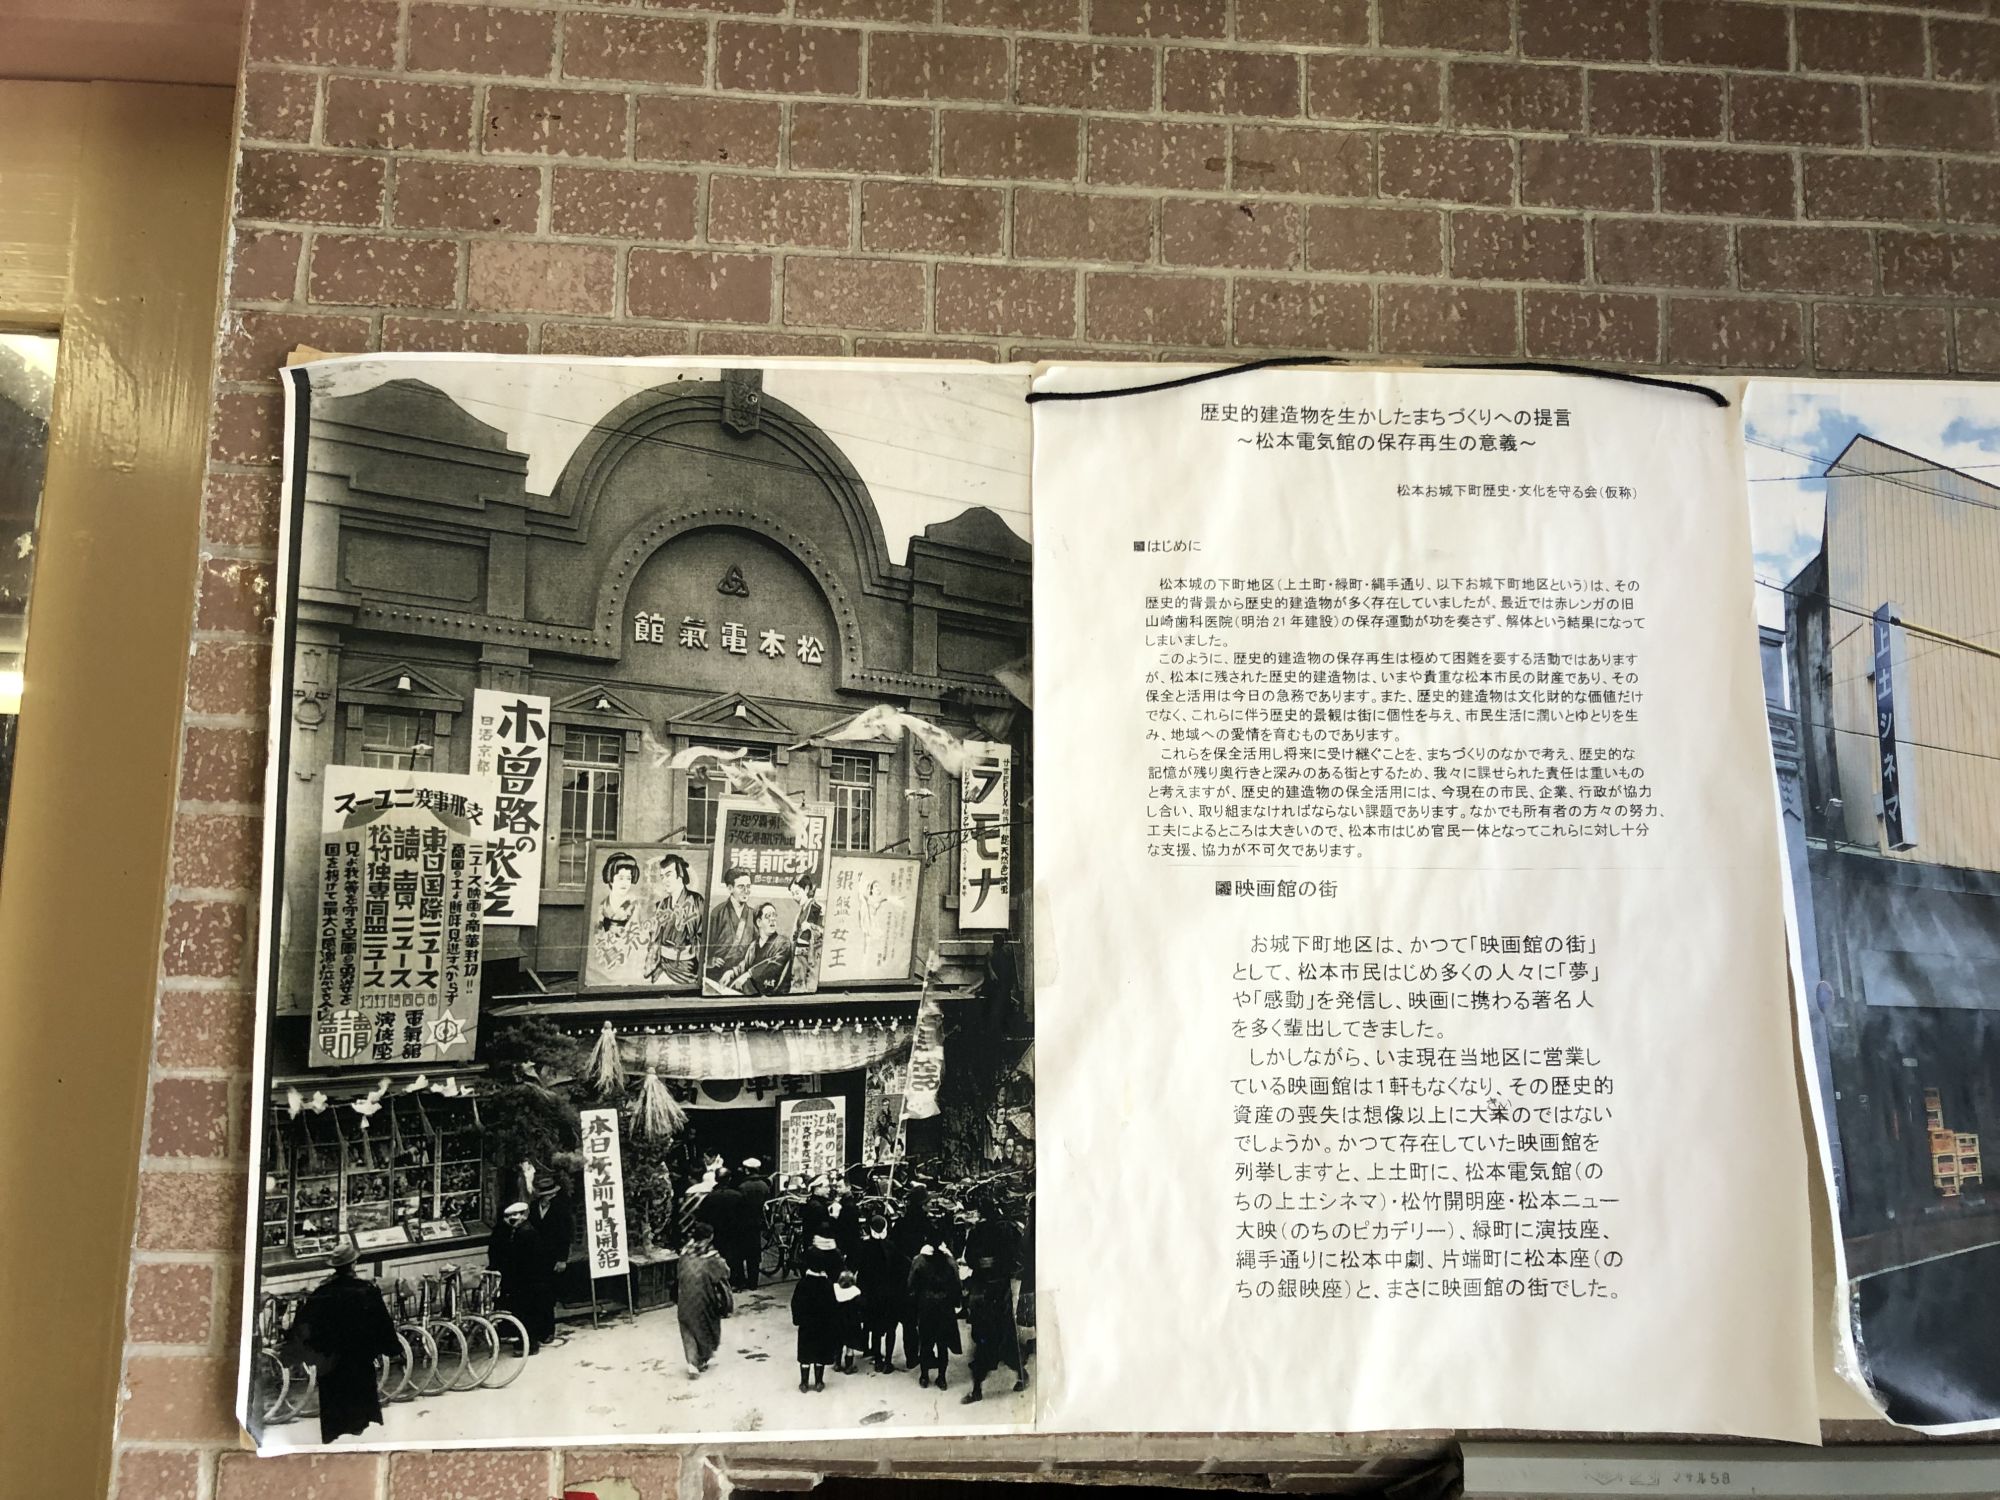 松本電氣館
木曽路の旅笠
日活京都
ラモナ
支那事変ニュース
ニュース映画の豪華封切!!
東日国際ニュース
讀賣ニュース
松竹独専同盟ニュース
電氣舘
演伎座
讀賣
銀盤の女王
本日午前十時開舘
歴史的建造物を生かしたまちづくりへの提言
～松本電気館の保存再生の意義～
松本お城下町歴史・文化を守る会(仮称)
はじめに
松本城の下町地区(上土町・緑町・縄手通り、以下お城下町地区という)は、その
歴史的背景から歴史的建造物が多く存在していましたが、最近では赤レンガの旧
山崎歯科医院(明治21年建設)の保存運動が功を奏さず、解体という結果になって
しまいました。
このように、歴史的建造物の保存再生は極めて困難を要する活動ではあります
が、松本に残された歴史的建造物は、いまや貴重な松本市民の財産であり、その
保全と活用は今日の急務であります。また、歴史的建造物は文化財的な価値だけ
でなく、これらに伴う歴史的景観は街に個性を与え、市民生活に潤いとゆとりを生
み、地域への愛情を育むものであります。
これらを保全活用し将来に受け継ぐことを、まちづくりのなかで考え、歴史的な
記憶が残り奥行きと深みのある街とするため、我々に課せられた責任は重いもの
と考えますが、歴史的建造物の保全活用には、今現在の市民、企業、行政が協力
し合い、取り組まなければならない課題であります。なかでも所有者の方々の努力、
工夫によるところは大きいので、松本市はじめ官民一体となってこれらに対し十分
な支援、協力が不可欠であります。
映画館の街
お城下町地区は、かつて「映画館の街」
として、松本市民はじめ多くの人々に「夢」
や「感動」を発信し、映画に携わる著名人
を多く輩出してきました。
しかしながら、いま現在当地区に営業し
ている映画館は1軒もなくなり、その歴史的
資産の喪失は想像以上に大きいのではない
でしょうか。かつて存在していた映画館を
列挙しますと、上土町に、松本電気館(の
ちの上土シネマ)・松竹開明座・松本ニュー
大映(のちのピカデリー)、緑町に演技座、
縄手通りに松本中劇、片端町に松本座(の
ちの銀映座)と、まさに映画館の街でした。
上土シネマ
マサル58